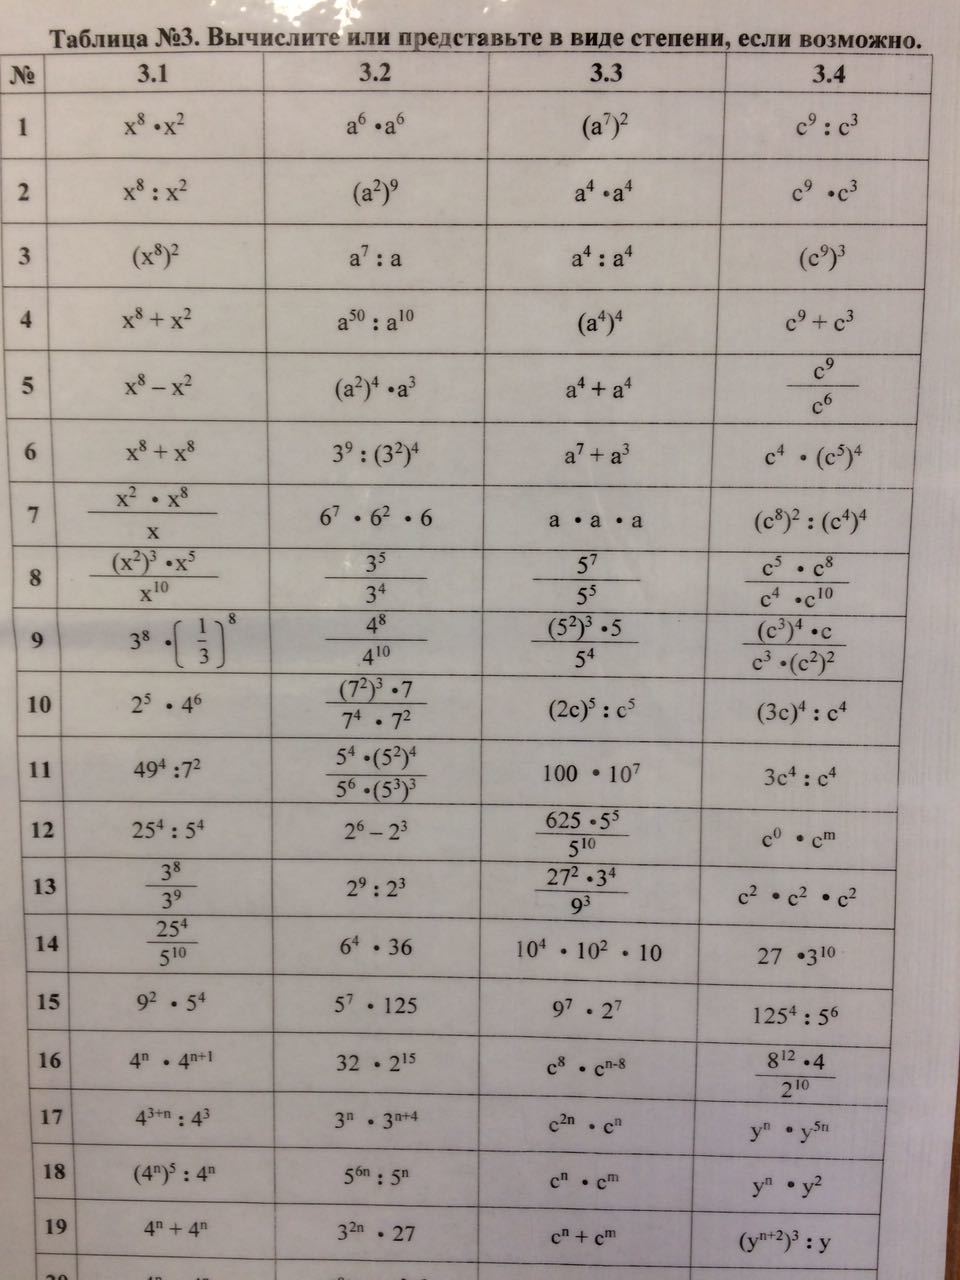 Таблица №3. Вычислите или представьте в виде степени, если возможно.
№ 3.1 3.2 3.3 3.4
1 x⁸ •x² a⁶ •a⁶ (a⁷)² c⁹ : c³
2 x⁸ : x² (a²)⁹ a⁴ •a⁴ c⁹ •c³
3 (x⁸)² a⁷ : a a⁴ : a⁴ (c⁹)³
4 x⁸ + x² a⁵⁰ : a¹⁰ (a⁴)⁴ c⁹ + c³
5 x⁸ – x² (a²)⁴ •a³ a⁴ + a⁴ c⁹/c⁶
6 x⁸ + x⁸ 3⁹ : (3²)⁴ a⁷ + a³ c⁴ • (c⁵)⁴
7 x² • x⁸/x 6⁷ • 6² • 6 a • a • a (c⁸)² : (c⁴)⁴
8 (x²)³ •x⁵/x¹⁰ 3⁵/3⁴ 5⁷/5⁵ c⁵ • c⁸/c⁴ •c¹⁰
9 3⁸ •(1/3)⁸ 4⁸/4¹⁰ (5²)³ •5/5⁴ (c³)⁴ •c/c³ •(c²)²
10 2⁵ • 4⁶ (7²)³ •7/7⁴ • 7² (2c)⁵ : c⁵ (3c)⁴ : c⁴
11 49⁴ :7² 5⁴ •(5²)⁴/5⁶ •(5³)³ 100 • 10⁷ 3c⁴ : c⁴
12 25⁴ : 5⁴ 2⁶ – 2³ 625 •5⁵/5¹⁰ c⁰ • cᵐ
13 3⁸/3⁹ 2⁹ : 2³ 27² •3⁴/9³ c² • c² • c²
14 25⁴/5¹⁰ 6⁴ • 36 10⁴ • 10² • 10 27 •3¹⁰
15 9² • 5⁴ 5⁷ • 125 9⁷ • 2⁷ 125⁴ : 5⁶
16 4ⁿ • 4ⁿ⁺¹ 32 • 2¹⁵ c⁸ • cⁿ⁻⁸ 8¹² •4/2¹⁰
17 4³⁺ⁿ : 4³ 3ⁿ • 3ⁿ⁺⁴ c²ⁿ • cⁿ yⁿ • y⁵ⁿ
18 (4ⁿ)⁵ : 4ⁿ 5⁶ⁿ : 5ⁿ cⁿ • cᵐ yⁿ • y²
19 4ⁿ + 4ⁿ 3²ⁿ • 27 cⁿ + cᵐ (yⁿ⁺²)³ : y